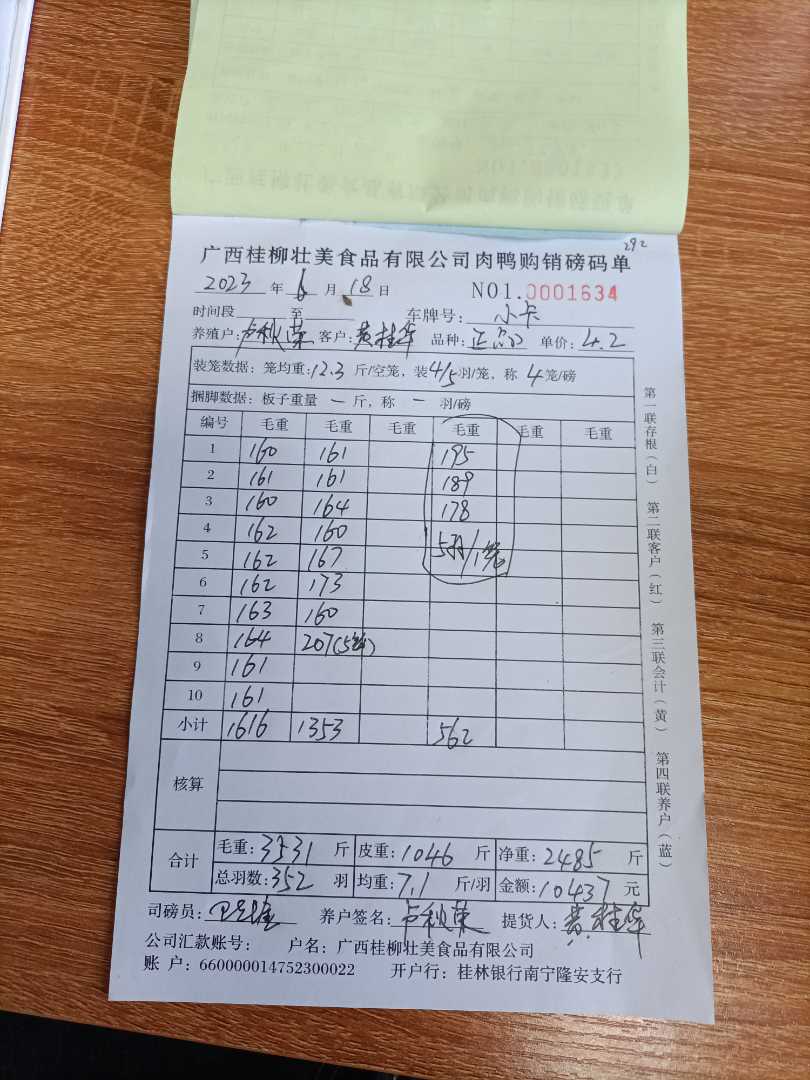 292
广西桂柳壮美食品有限公司肉鸭购销磅码单
2023 年 6 月 18 日 NO1.0001634
时间段 至 车牌号: 小卡
养殖户: 卢秋荣 客户: 黄桂华 品种: 正品 单价: 4.2
装笼数据: 笼均重: 12.3 斤/空笼, 装 4/5 羽/笼, 称 4 笼/磅
捆脚数据: 板子重量 一 斤, 称 一 羽/磅
编号 毛重 毛重 毛重 毛重 毛重 毛重
1 160 161 195
2 161 161 189
3 160 164 178
4 162 160 5羽/1笼
5 162 167
6 162 173
7 163 160
8 164 207(5笼)
9 161
10 161
小计 1616 1353 562
核算
合计 毛重: 3531 斤 皮重: 1046 斤 净重: 2485 斤
总羽数: 352 羽 均重: 7.1 斤/羽 金额: 10437 元
司磅员: 养户签名: 卢秋荣 提货人: 黄桂华
公司汇款账号: 户名: 广西桂柳壮美食品有限公司
账 户: 660000014752300022 开户行: 桂林银行南宁隆安支行
第一联存根(白) 第二联客户(红) 第三联会计(黄) 第四联养户(蓝)